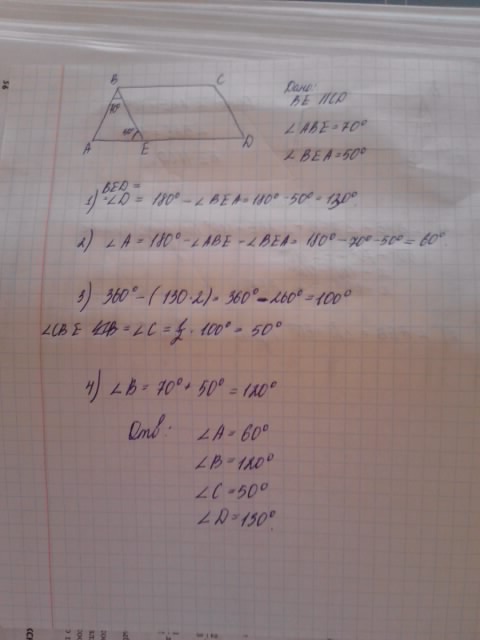 B
C
70°
A
E
D
Дано:
BE || CD
∠ABE = 70°
∠BEA = 50°
BED =
1) ∠D = 180° - ∠BEA = 180° - 50° = 130°
2) ∠A = 180° - ∠ABE - ∠BEA = 180° - 70° - 50° = 60°
3) 360° - (130·2) = 360° - 260° = 100°
∠CBE = ∠C = 1/2 · 100° = 50°
4) ∠B = 70° + 50° = 120°
Отв: ∠A = 60°
∠B = 120°
∠C = 50°
∠D = 130°